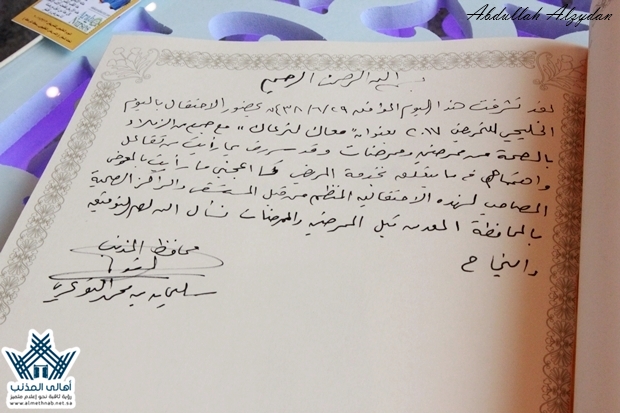 Abdullah Alzydan
بسم الله الرحمن الرحيم
لقد تشرفت هذا اليوم الموافق ١٤٣٨/٦/٢٩هـ بحضور الاحتفال باليوم
الخليجي للتمريض ٢٠١٧ بعنوان " معاك لنرعاك " مع جمع من الزملاء
بالصحة من ممرضين وممرضات وقد سررت بما رأيت من تفاعل
واهتمام في ما يتعلق بخدمة المريض كما اعجبني ما رأيت بالمعرض
المصاحب لهذه الاحتفالية المنظم من قبل المستشفى والمراكز الصحية
بالمحافظة المعد من قبل الممرضين والممرضات نسأل الله لهم التوفيق
والنجاح
محافظ المذنب
سليمان بن محمد
أهالي المذنب
رؤية ثاقبة نحو إعلام متميز
www.almethnab.net.sa